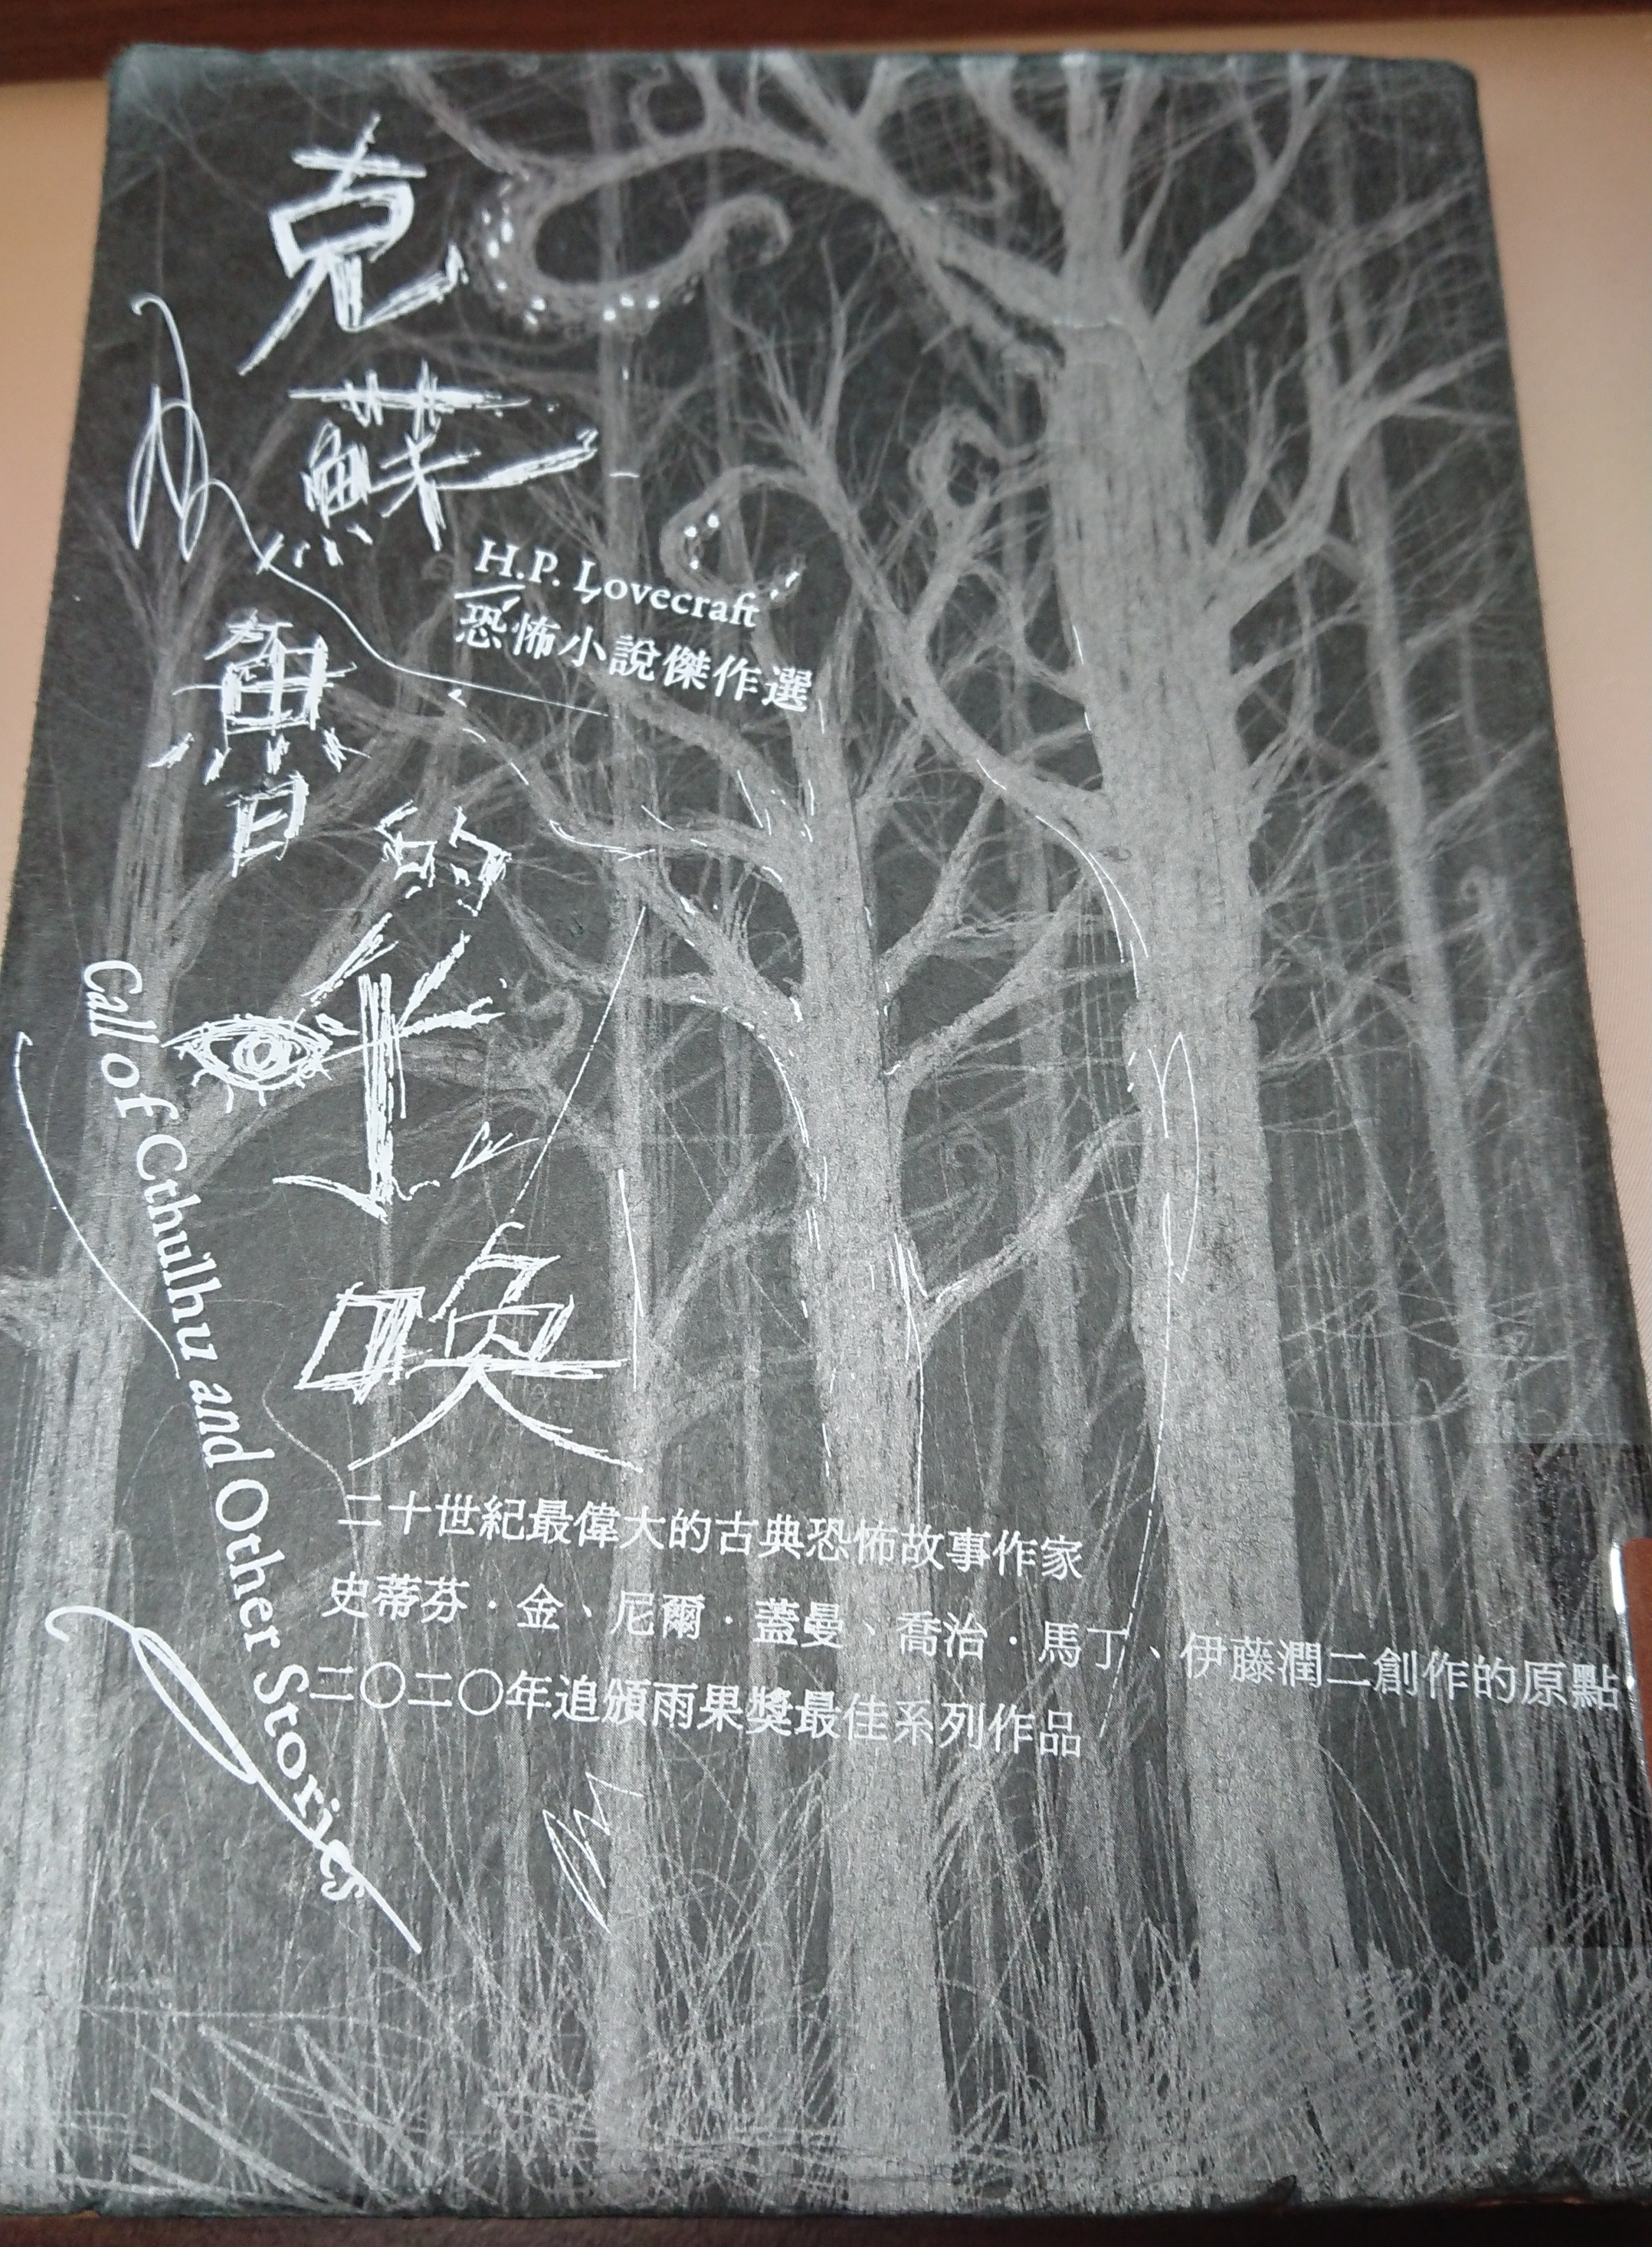 克蘇魯的呼喚
H.P. Lovecraft
恐怖小說傑作選
Call of Cthulhu and Other Stories
二十世紀最偉大的古典恐怖故事作家
史蒂芬·金、尼爾·蓋曼、喬治·馬丁、伊藤潤二創作的原點
二〇二〇年追頒雨果獎最佳系列作品